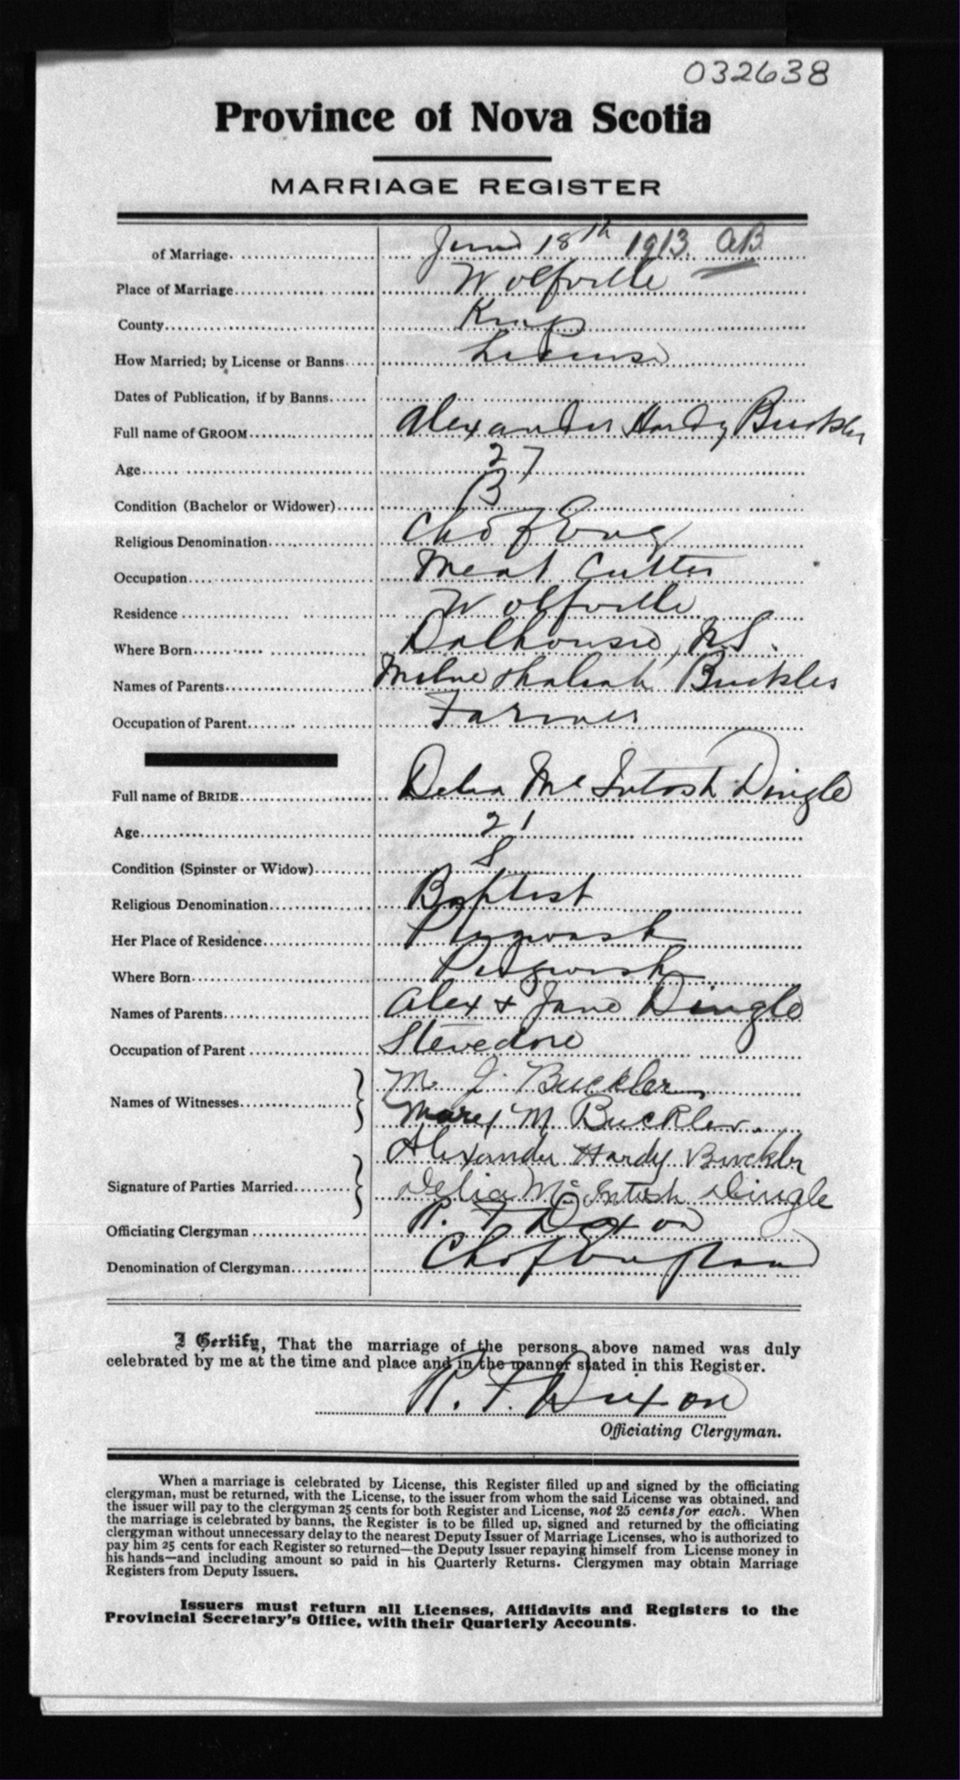 032638
Province of Nova Scotia
MARRIAGE REGISTER
of Marriage. June 18th 1913. AB
Place of Marriage Wolfville
County Kings
How Married; by License or Banns License
Dates of Publication, if by Banns
Full name of GROOM Alexander Hardy Buckler
Age 27
Condition (Bachelor or Widower) B
Religious Denomination Ch of Eng
Occupation Meat Cutter
Residence Wolfville
Where Born Dalhousie, N.S.
Names of Parents Buckler
Occupation of Parent Farmer
Full name of BRIDE Delia McIntosh Dingle
Age 21
Condition (Spinster or Widow) S
Religious Denomination Baptist
Her Place of Residence Pugwash
Where Born Pugwash
Names of Parents Alex & Jane Dingle
Occupation of Parent Stevedore
Names of Witnesses M. J. Buckler
Mary M Buckler.
Signature of Parties Married Alexander Hardy Buckler
Delia McIntosh Dingle
Officiating Clergyman R. F. Dixon
Denomination of Clergyman Ch of England
I Certify, That the marriage of the persons above named was duly
celebrated by me at the time and place and in the manner stated in this Register.
R. F. Dixon
Officiating Clergyman.
When a marriage is celebrated by License, this Register filled up and signed by the officiating
clergyman, must be returned, with the License, to the issuer from whom the said License was obtained, and
the issuer will pay to the clergyman 25 cents for both Register and License, not 25 cents for each. When
the marriage is celebrated by banns, the Register is to be filled up, signed and returned by the officiating
clergyman without unnecessary delay to the nearest Deputy Issuer of Marriage Licenses, who is authorized to
pay him 25 cents for each Register so returned—the Deputy Issuer repaying himself from License money in
his hands—and including amount so paid in his Quarterly Returns. Clergymen may obtain Marriage
Registers from Deputy Issuers.
Issuers must return all Licenses, Affidavits and Registers to the
Provincial Secretary's Office, with their Quarterly Accounts.